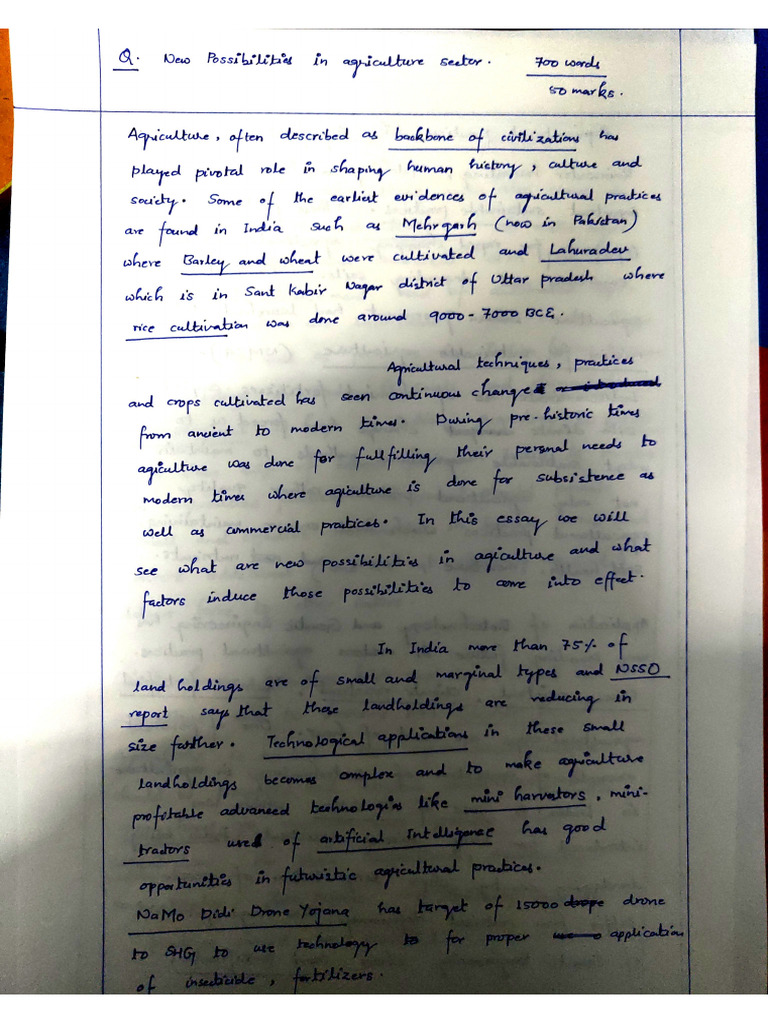 Q. New Possibilities in agriculture sector. 700 words
50 marks.
Agriculture, often described as backbone of civilizations has
played pivotal role in shaping human history, culture and
society. Some of the earliest evidences of agricultural practices
are found in India such as Mehrgarh (now in Pakistan)
where Barley and wheat were cultivated and Lahuradev
which is in Sant Kabir Nagar district of Uttar pradesh where
rice cultivation was done around 9000-7000 BCE.
Agricultural techniques, practices
and crops cultivated has seen continuous change
from ancient to modern times. During pre-historic times
agiculture was done for fullfilling their personal needs to
modern times where agiculture is done for subsistence as
well as commercial practices. In this essay we will
see what are new possibilities in agiculture and what
factors induce those possibilities to come into effect.
In India more than 75% of
land holdings are of small and marginal types and NSSO
report says that these landholdings are reducing in
size further. Technological applications in these small
landholdings becomes complex and to make agiculture
profitable advanced technologies like mini harvators, mini-
tractors used of artificial Intelligence has good
opportunities in futuristic agicultural practices.
NaMo Didi Drone Yojana has target of 15000 drone
to SHG to use technology for proper application
of insecticible, fertilizers.